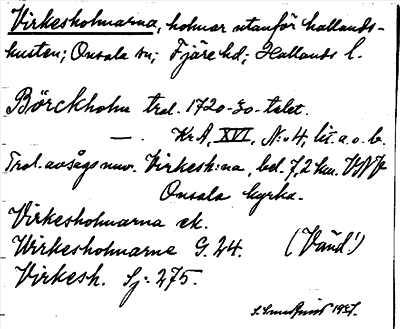 Virkesholmarna, holmar utanför hallands-
kusten; Onsala sn; Fjäre hd; Hallands l.
Börckholm trol. 1720-30-talet.
— KrA, XVI, N:o 4, lit. a. o. b.
Trol. avsågs nuv. Virkesh:na, bel. 7,2 km. VNV
Onsala kyrka.
Virkesholmarna ek.
Wirkesholmarne G. 24. (Vänd!)
Virkesh. Sj: 275.
1937.